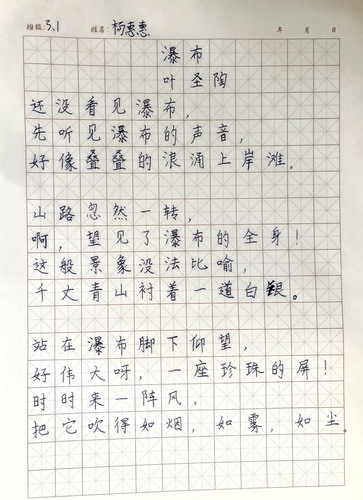 班级:3.1 姓名:杨惠惠 年 月 日
瀑布
叶圣陶
还没看见瀑布，
先听见瀑布的声音，
好像叠叠的浪涌上岸滩。
山路忽然一转，
啊，望见了瀑布的全身！
这般景象没法比喻，
千丈青山衬着一道白银。
站在瀑布脚下仰望，
好伟大呀，一座珍珠的屏！
时时来一阵风，
把它吹得如烟，如雾，如尘。